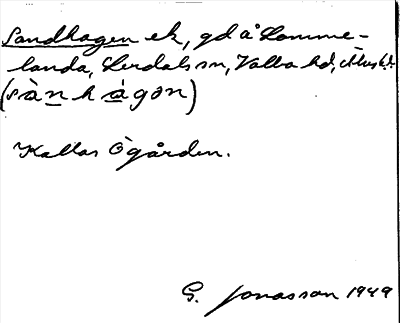 Sandhagen ek, gd å Lomme-
landa, Lerdals sn, Valbo hd,
(sànhágɘn)
Kallas Ögården.
G. Jonasson 1949